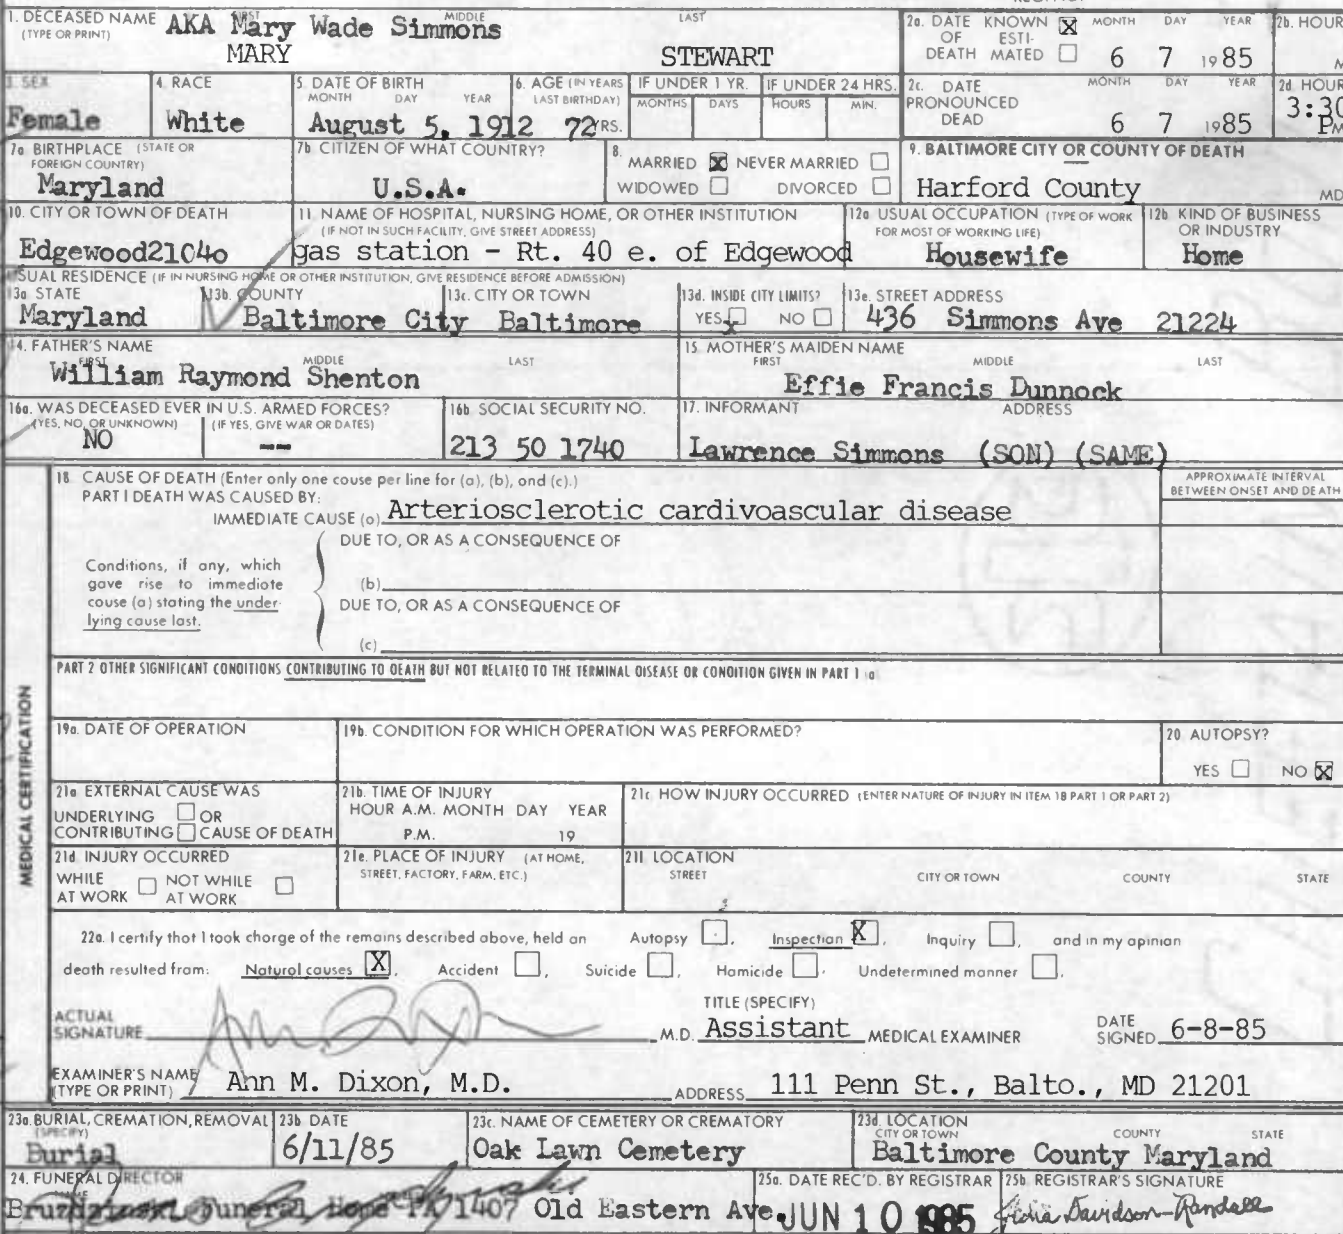 1. DECEASED NAME (TYPE OR PRINT) FIRST MIDDLE LAST
AKA Mary Wade Simmons
MARY STEWART
2a. DATE OF DEATH KNOWN X ESTIMATED MONTH DAY YEAR 6 7 1985
2b. HOUR M
3. SEX Female
4. RACE White
5. DATE OF BIRTH MONTH DAY YEAR August 5, 1912
6. AGE (IN YEARS LAST BIRTHDAY) 72 YRS.
IF UNDER 1 YR. MONTHS DAYS
IF UNDER 24 HRS. HOURS MIN.
2c. DATE PRONOUNCED DEAD MONTH DAY YEAR 6 7 1985
2d HOUR 3:30 PM
7a BIRTHPLACE (STATE OR FOREIGN COUNTRY) Maryland
7b CITIZEN OF WHAT COUNTRY? U.S.A.
8. MARRIED X NEVER MARRIED
WIDOWED DIVORCED
9. BALTIMORE CITY OR COUNTY OF DEATH Harford County MD
10. CITY OR TOWN OF DEATH Edgewood2104o
11. NAME OF HOSPITAL, NURSING HOME, OR OTHER INSTITUTION
(IF NOT IN SUCH FACILITY, GIVE STREET ADDRESS)
gas station - Rt. 40 e. of Edgewood
12a USUAL OCCUPATION (TYPE OF WORK FOR MOST OF WORKING LIFE) Housewife
12b KIND OF BUSINESS OR INDUSTRY Home
USUAL RESIDENCE (IF IN NURSING HOME OR OTHER INSTITUTION, GIVE RESIDENCE BEFORE ADMISSION)
13a STATE Maryland
13b. COUNTY Baltimore City
13c. CITY OR TOWN Baltimore
13d. INSIDE CITY LIMITS? YES x NO
13e. STREET ADDRESS 436 Simmons Ave 21224
14. FATHER'S NAME FIRST MIDDLE LAST
William Raymond Shenton
15 MOTHER'S MAIDEN NAME FIRST MIDDLE LAST
Effie Francis Dunnock
16a. WAS DECEASED EVER IN U.S. ARMED FORCES?
(YES, NO, OR UNKNOWN) (IF YES, GIVE WAR OR DATES)
NO --
16b SOCIAL SECURITY NO. 213 50 1740
17. INFORMANT ADDRESS
Lawrence Simmons (SON) (SAME)
MEDICAL CERTIFICATION
18 CAUSE OF DEATH (Enter only one couse per line for (a), (b), and (c).)
PART I DEATH WAS CAUSED BY:
IMMEDIATE CAUSE (a) Arteriosclerotic cardivoascular disease
APPROXIMATE INTERVAL BETWEEN ONSET AND DEATH
DUE TO, OR AS A CONSEQUENCE OF
Conditions, if any, which
gave rise to immediate
couse (a) stating the under-
lying cause last.
(b)
DUE TO, OR AS A CONSEQUENCE OF
(c)
PART 2 OTHER SIGNIFICANT CONDITIONS CONTRIBUTING TO DEATH BUT NOT RELATED TO THE TERMINAL DISEASE OR CONDITION GIVEN IN PART 1 (a)
19a. DATE OF OPERATION
19b. CONDITION FOR WHICH OPERATION WAS PERFORMED?
20 AUTOPSY?
YES NO X
21a EXTERNAL CAUSE WAS
UNDERLYING OR
CONTRIBUTING CAUSE OF DEATH
21b. TIME OF INJURY
HOUR A.M. MONTH DAY YEAR
P.M. 19
21c HOW INJURY OCCURRED (ENTER NATURE OF INJURY IN ITEM 18 PART 1 OR PART 2)
21d INJURY OCCURRED
WHILE AT WORK NOT WHILE AT WORK
21e. PLACE OF INJURY (AT HOME, STREET, FACTORY, FARM, ETC.)
21f. LOCATION
STREET CITY OR TOWN COUNTY STATE
22a. I certify that I took charge of the remains described above, held an Autopsy , Inspection X , Inquiry , and in my opinion
death resulted from: Natural causes X , Accident , Suicide , Homicide , Undetermined manner .
ACTUAL SIGNATURE M.D.
TITLE (SPECIFY) Assistant MEDICAL EXAMINER
DATE SIGNED 6-8-85
EXAMINER'S NAME (TYPE OR PRINT) Ann M. Dixon, M.D.
ADDRESS 111 Penn St., Balto., MD 21201
23a. BURIAL, CREMATION, REMOVAL (SPECIFY) Burial
23b DATE 6/11/85
23c. NAME OF CEMETERY OR CREMATORY Oak Lawn Cemetery
23d. LOCATION CITY OR TOWN COUNTY STATE
Baltimore County Maryland
24. FUNERAL DIRECTOR NAME
Bruzdzinski Funeral Home PA 1407 Old Eastern Ave.
25a. DATE REC'D. BY REGISTRAR JUN 10 1985
25b. REGISTRAR'S SIGNATURE
Davidson-Randall